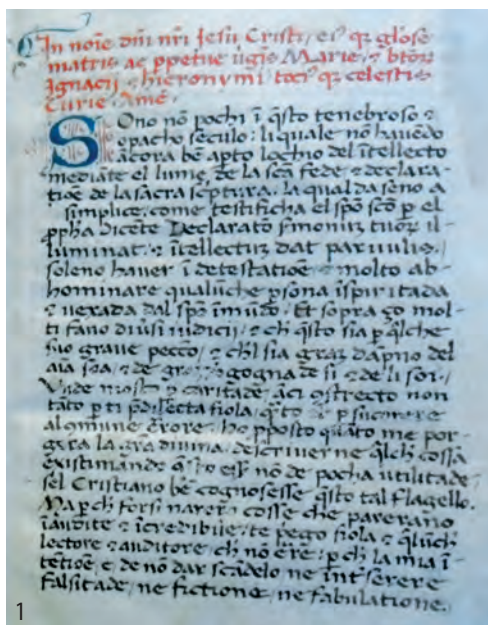 In noīe dñi nrī Jesu Cristi, eiꝰ qꝫ glose
matris ac ppetue ũgis Marie, ⁊ btoꝝ
Ignacij ⁊ hieronymi toci qꝫ celestis
Curie Amē.
Sono nō pochi ī q̄sto tenebroso ⁊
opacho seculo: li quale nō havēdo
ācora bē apto lochio del ītellecto
mediāte el lume de la scā fede ⁊ declara-
tiōe de la sacra scptura, la qual da seno a
simplice, come testificha el spō scō p el
ppħa dicēte Declaratō smonuz tuoꝝ il-
luminat, ⁊ ītellectuz dat parvulis,
soleno haver ī detestatiōe ⁊ molto ab-
hominare qualūche psona īspiritada
⁊ vexada dal spō īmūdo. Et sopra ço mol-
ti fano divsi iudicii, ⁊ cħ q̄sto sia p q̄lche
suo grave peccō, ⁊ cħl sia graz dāpno del
aīa sua, ⁊ de gogna de si ⁊ de li soi.
Unde mosto ⁊ caritade āci ostrecto non
tāto p ti pdilecta fiola, q̄to ⁊ p sucorere
al omune erore, ho pposto quāto me por-
gera la grā divina, descriver ne q̄lcħ cossa
existimāde q̄sto esse nō de pocha utilitade,
sel Cristiano bē cognosesse q̄sto tal flagello.
Ma p cħ forsi narerò cosse che pareraño
īaudite ⁊ īcredibile, te pego fiola ⁊ q̄lūcħ
lectore ⁊ auditore, cħ nō ēre, p cħ la mia ī-
tētiōe, e de nō dar scādelo ne īnt'serere
falsitade, ne fictione, ne fabulatione.
1